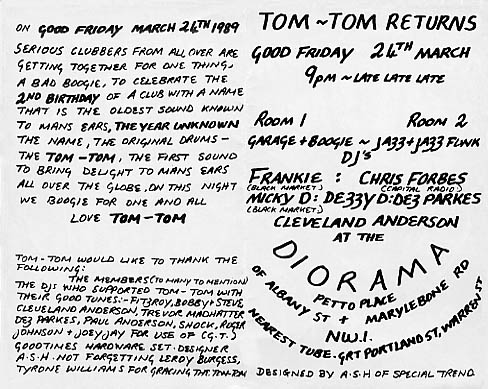 ON GOOD FRIDAY MARCH 24TH 1989
SERIOUS CLUBBERS FROM ALL OVER ARE
GETTING TOGETHER FOR ONE THING,
A BAD BOOGIE, TO CELEBRATE THE
2ND BIRTHDAY OF A CLUB WITH A NAME
THAT IS THE OLDEST SOUND KNOWN
TO MANS EARS, THE YEAR UNKNOWN
THE NAME, THE ORIGINAL DRUMS-
THE TOM-TOM, THE FIRST SOUND
TO BRING DELIGHT TO MANS EARS
ALL OVER THE GLOBE, ON THIS NIGHT
WE BOOGIE FOR ONE AND ALL
LOVE TOM-TOM
TOM-TOM WOULD LIKE TO THANK THE
FOLLOWING:
THE MEMBERS (TO MANY TO MENTION)
THE DJS WHO SUPPORTED TOM-TOM WITH
THEIR GOOD TUNES:- FITZROY, BOBBY + STEVE
CLEVELAND ANDERSON, TREVOR MADHATTER
DEZ PARKES, PAUL ANDERSON, SHOCK, ROGER
JOHNSON + JOEY JAY FOR USE OF (G.T.)
GOODTIMES HARDWARE SET. DESIGNER
A.S.H. NOT FORGETTING LEROY BURGESS,
TYRONE WILLIAMS FOR GRACING THE TOM-TOM
TOM~TOM RETURNS
GOOD FRIDAY 24TH MARCH
9PM ~ LATE LATE LATE
ROOM 1 ROOM 2
GARAGE + BOOGIE ~ JAZZ + JAZZ FUNK
DJ'S
FRANKIE : CHRIS FORBES
(BLACK MARKET) (CAPITAL RADIO)
MICKY D: DEZZY D: DEZ PARKES
(BLACK MARKET)
CLEVELAND ANDERSON
AT THE
DIORAMA
PETTO PLACE
OF ALBANY ST + MARYLEBONE RD
N.W.1.
NEAREST TUBE. GRT PORTLAND ST, WARREN ST
DESIGNED BY A.S.H OF SPECIAL TREND